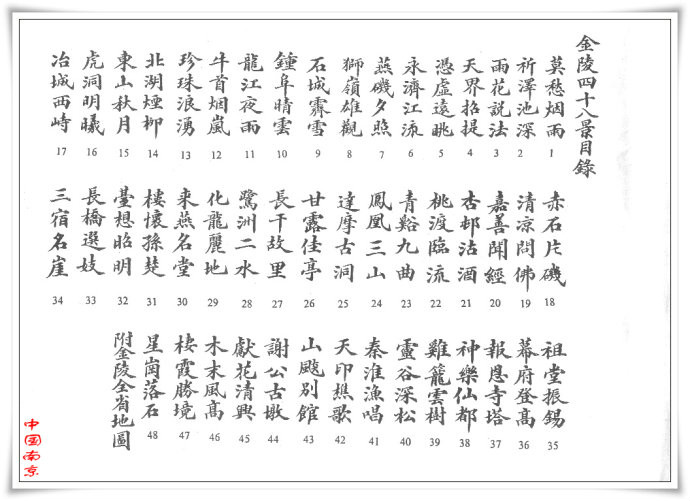 金陵四十八景目錄
莫愁烟雨 1
祈澤池深 2
雨花説法 3
天界招提 4
憑虚遠眺 5
永濟江流 6
燕磯夕照 7
獅嶺雄觀 8
石城霽雪 9
鍾阜晴雲 10
龍江夜雨 11
牛首烟嵐 12
珍珠浪湧 13
北湖煙柳 14
東山秋月 15
虎洞明曦 16
冶城西峙 17
赤石片磯 18
清凉問佛 19
嘉善聞經 20
杏邨沽酒 21
桃渡臨流 22
青谿九曲 23
鳳凰三山 24
達摩古洞 25
甘露佳亭 26
長干故里 27
鷺洲二水 28
化龍麗地 29
來燕名堂 30
樓懷孫楚 31
臺想昭明 32
長橋選妓 33
三宿名崖 34
祖堂振錫 35
幕府登高 36
報恩寺塔 37
神樂仙都 38
雞籠雲樹 39
靈谷深松 40
秦淮漁唱 41
天印樵歌 42
山颾別館 43
謝公古墩 44
獻花清興 45
木末風高 46
棲霞勝境 47
星崗落石 48
附金陵全省地圖
中国南京